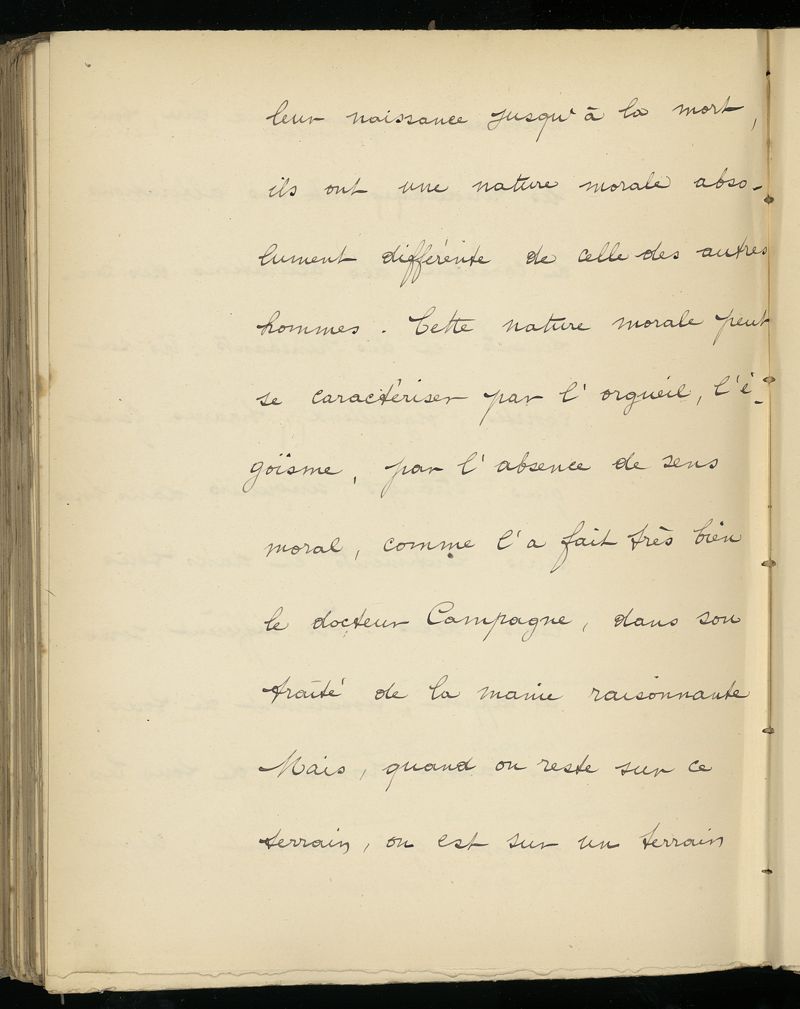 leur naissance jusqu'à la mort,
ils ont une nature morale abso-
lument différente de celle des autres
hommes. Cette nature morale peut
se caractériser par l'orgueil, l'é-
goïsme, par l'absence de sens
moral, comme l'a fait très bien
le docteur Campagne, dans son
traité de la manie raisonnante
Mais, quand on reste sur ce
terrain, on est sur un terrain